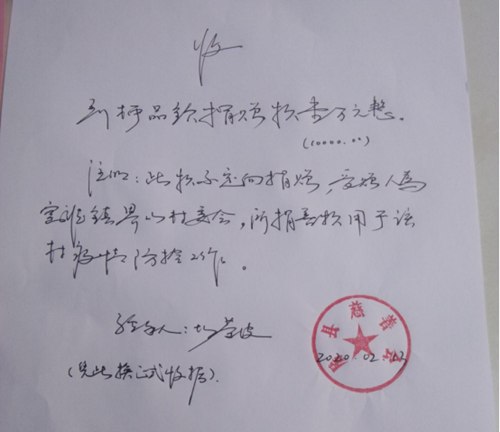 收
到杨品銓捐赠款壹万元整。
(10000.00)
注明：此款系定向捐赠，受赠人为
镇界山村委会，所捐善款用于该
村疫情防控工作。
经办人：
(凭此换正式收据)。
县慈善会
2020.02.12